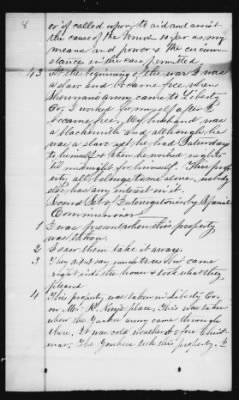 8
or if called upon, to aid and assist
the cause of the Union so far as my
means and power & the circum
stance in the case permitted
43 At the beginning of the war I was
a slave and became free when
Sherman's army came to Liberty
Co. I worked for myself after I
became free. My husband was
a blacksmith and although he
was a slave yet he had Saturday
to himself & when he worked nights
he worked for himself. This prop
erty all belongs to me alone, nobody
else has any interest in it.
Second Set of Interrogatories by Special
Commissioner
1 I was present when this property
was taken.
2 I saw them take it away.
3 They did not say much to me but came
right into the house & took what they
pleased
4 This property was taken in Liberty Co,
on Mr. place. This was taken
when the Yankee army came through
there. It was cold weather before Christ
mas. The Yankees took this property. I